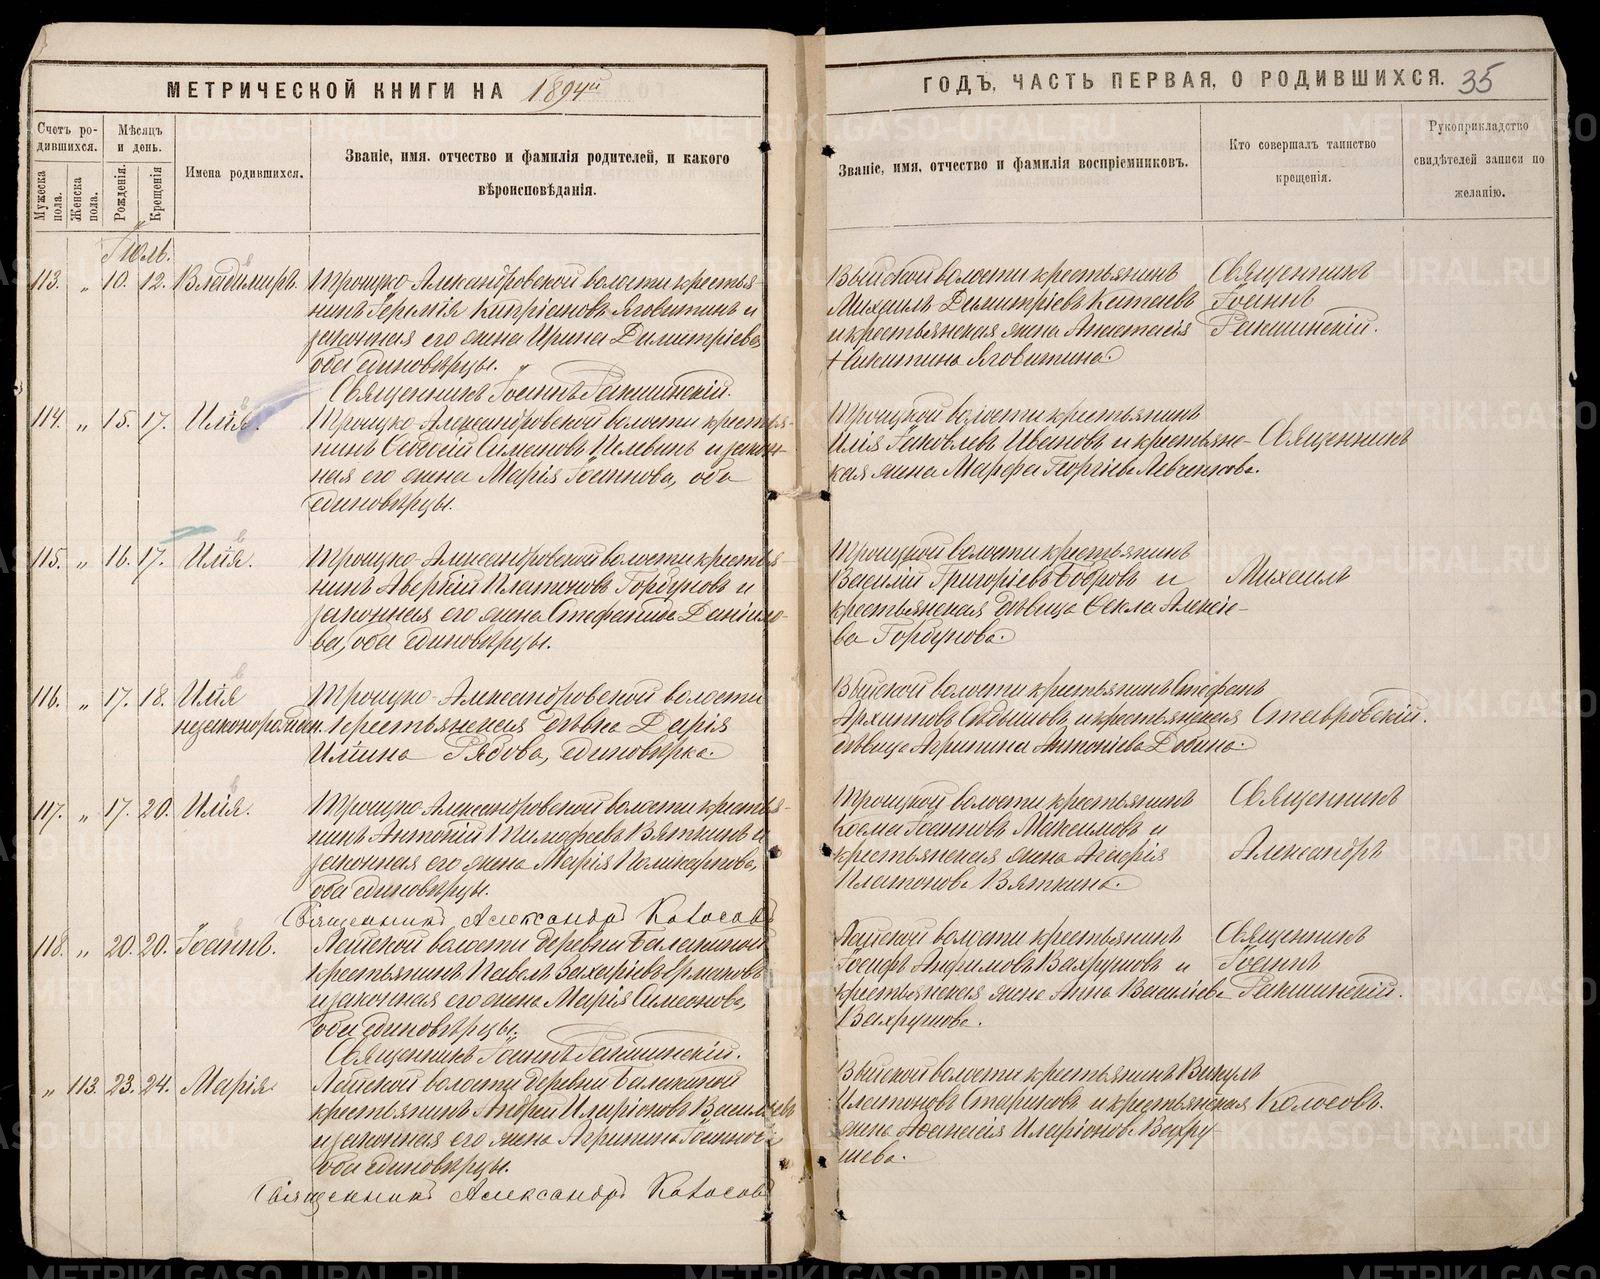 МЕТРИЧЕСКОЙ КНИГИ НА 1894й
ГОДЪ, ЧАСТЬ ПЕРВАЯ, О РОДИВШИХСЯ. 35
Счетъ ро-
дившихся.
Мѣсяцъ
и день.
Мужеска
пола.
Женска
пола.
Рожденія.
Крещенія
Имена родившихся.
Званіе, имя, отчество и фамилія родителей, и какого
вѣроисповѣданія.
Званіе, имя, отчество и фамилія воспріемниковъ.
Кто совершалъ таинство
крещенія.
Рукоприкладство
свидѣтелей записи по
желанію.
Іюль.
113. „ 10. 12. Владиміръ.
Троицко-Александровской волости крестья-
нинъ Іеремія Кипріановъ Яговитинъ и
законная его жена Ирина Димитріева,
оба единовѣрцы.
Священникъ Іоаннъ
Выйской волости крестьянинъ
Михаилъ Димитріевъ Катаевъ
и крестьянская жена Анастасія
Никитина Яговитина.
Священникъ
Іоаннъ
114. „ 15. 17. Илія.
Троицко-Александровской волости крестья-
нинъ Симеоновъ и закон-
ная его жена Марія Іоаннова, оба
единовѣрцы.
Троицкой волости крестьянинъ
Илія Іаковлевъ Ивановъ и крестьянс-
кая жена Марфа Георгіева Левченкова.
Священникъ
115. „ 16. 17. Илія.
Троицко-Александровской волости крестья-
нинъ Аверкій Платоновъ Горбуновъ и
законная его жена Стефанида Данііло-
ва, оба единовѣрцы.
Троицкой волости крестьянинъ
Василій Григоріевъ Бобровъ и
крестьянская дѣвица Ѳекла Алексіе-
ва Горбунова.
Михаилъ
116. „ 17. 18. Илія
незаконорожден.
Троицко-Александровской волости
крестьянская дѣвка Дарія
Ильина Рябова, единовѣрка.
Выйской волости крестьянинъ Стефанъ
Архиповъ и крестьянская
дѣвица Агрипина Антоніева
Ставровскій.
117. „ 17. 20. Илія.
Троицко-Александровской волости крестья-
нинъ Антоній Тимофеевъ Вяткинъ и
законная его жена Марія Поликарпова,
оба единовѣрцы.
Священникъ Александръ Колосовъ
Троицкой волости крестьянинъ
Косма Іоанновъ Максимовъ и
крестьянская жена Агафія
Платонова Вяткина.
Священникъ
Александръ
118. „ 20. 20. Іоаннъ.
Лайской волости деревни Балакиной
крестьянинъ Павелъ Захаріевъ Ермаковъ
и законная его жена Марія Симеонова,
оба единовѣрцы.
Священникъ Іоаннъ
Лайской волости крестьянинъ
Іосифъ Анфимовъ Вахрушовъ и
крестьянская жена Анна Василіева
Вахрушова.
Священникъ
Іоаннъ
„ 113. 23. 24. Марія.
Лайской волости деревни Балакиной
крестьянинъ Андрей Иларіоновъ Васильевъ
и законная его жена Агрипина Іоаннова
оба единовѣрцы.
Священникъ Александръ Колосовъ
Выйской волости крестьянинъ Викулъ
Платоновъ Стариковъ и крестьянская
жена Аѳанасія Иларіонова Вахру-
шева.
Колосовъ.